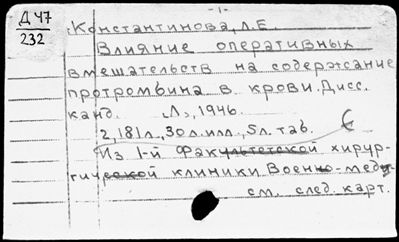 Д 47
232
-1-
Константинова, Л.Е.
Влияние оперативных
вмешательств на содержание
протромбина в крови. Дисс.
канд. Л., 1946.
2, 181 л., 30 л. илл., 5 л. таб.
Из 1-й Факультетской хирур-
гической клиники Военно-меди-
см. след. карт.